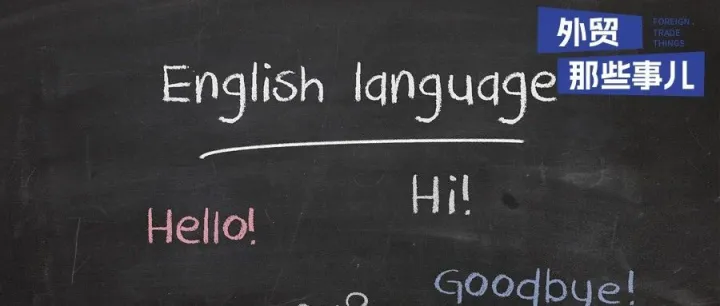 外贸
FOREIGN
TRADE
THINGS
那些事儿
English language
Hi!
Hello!
Goodbye!